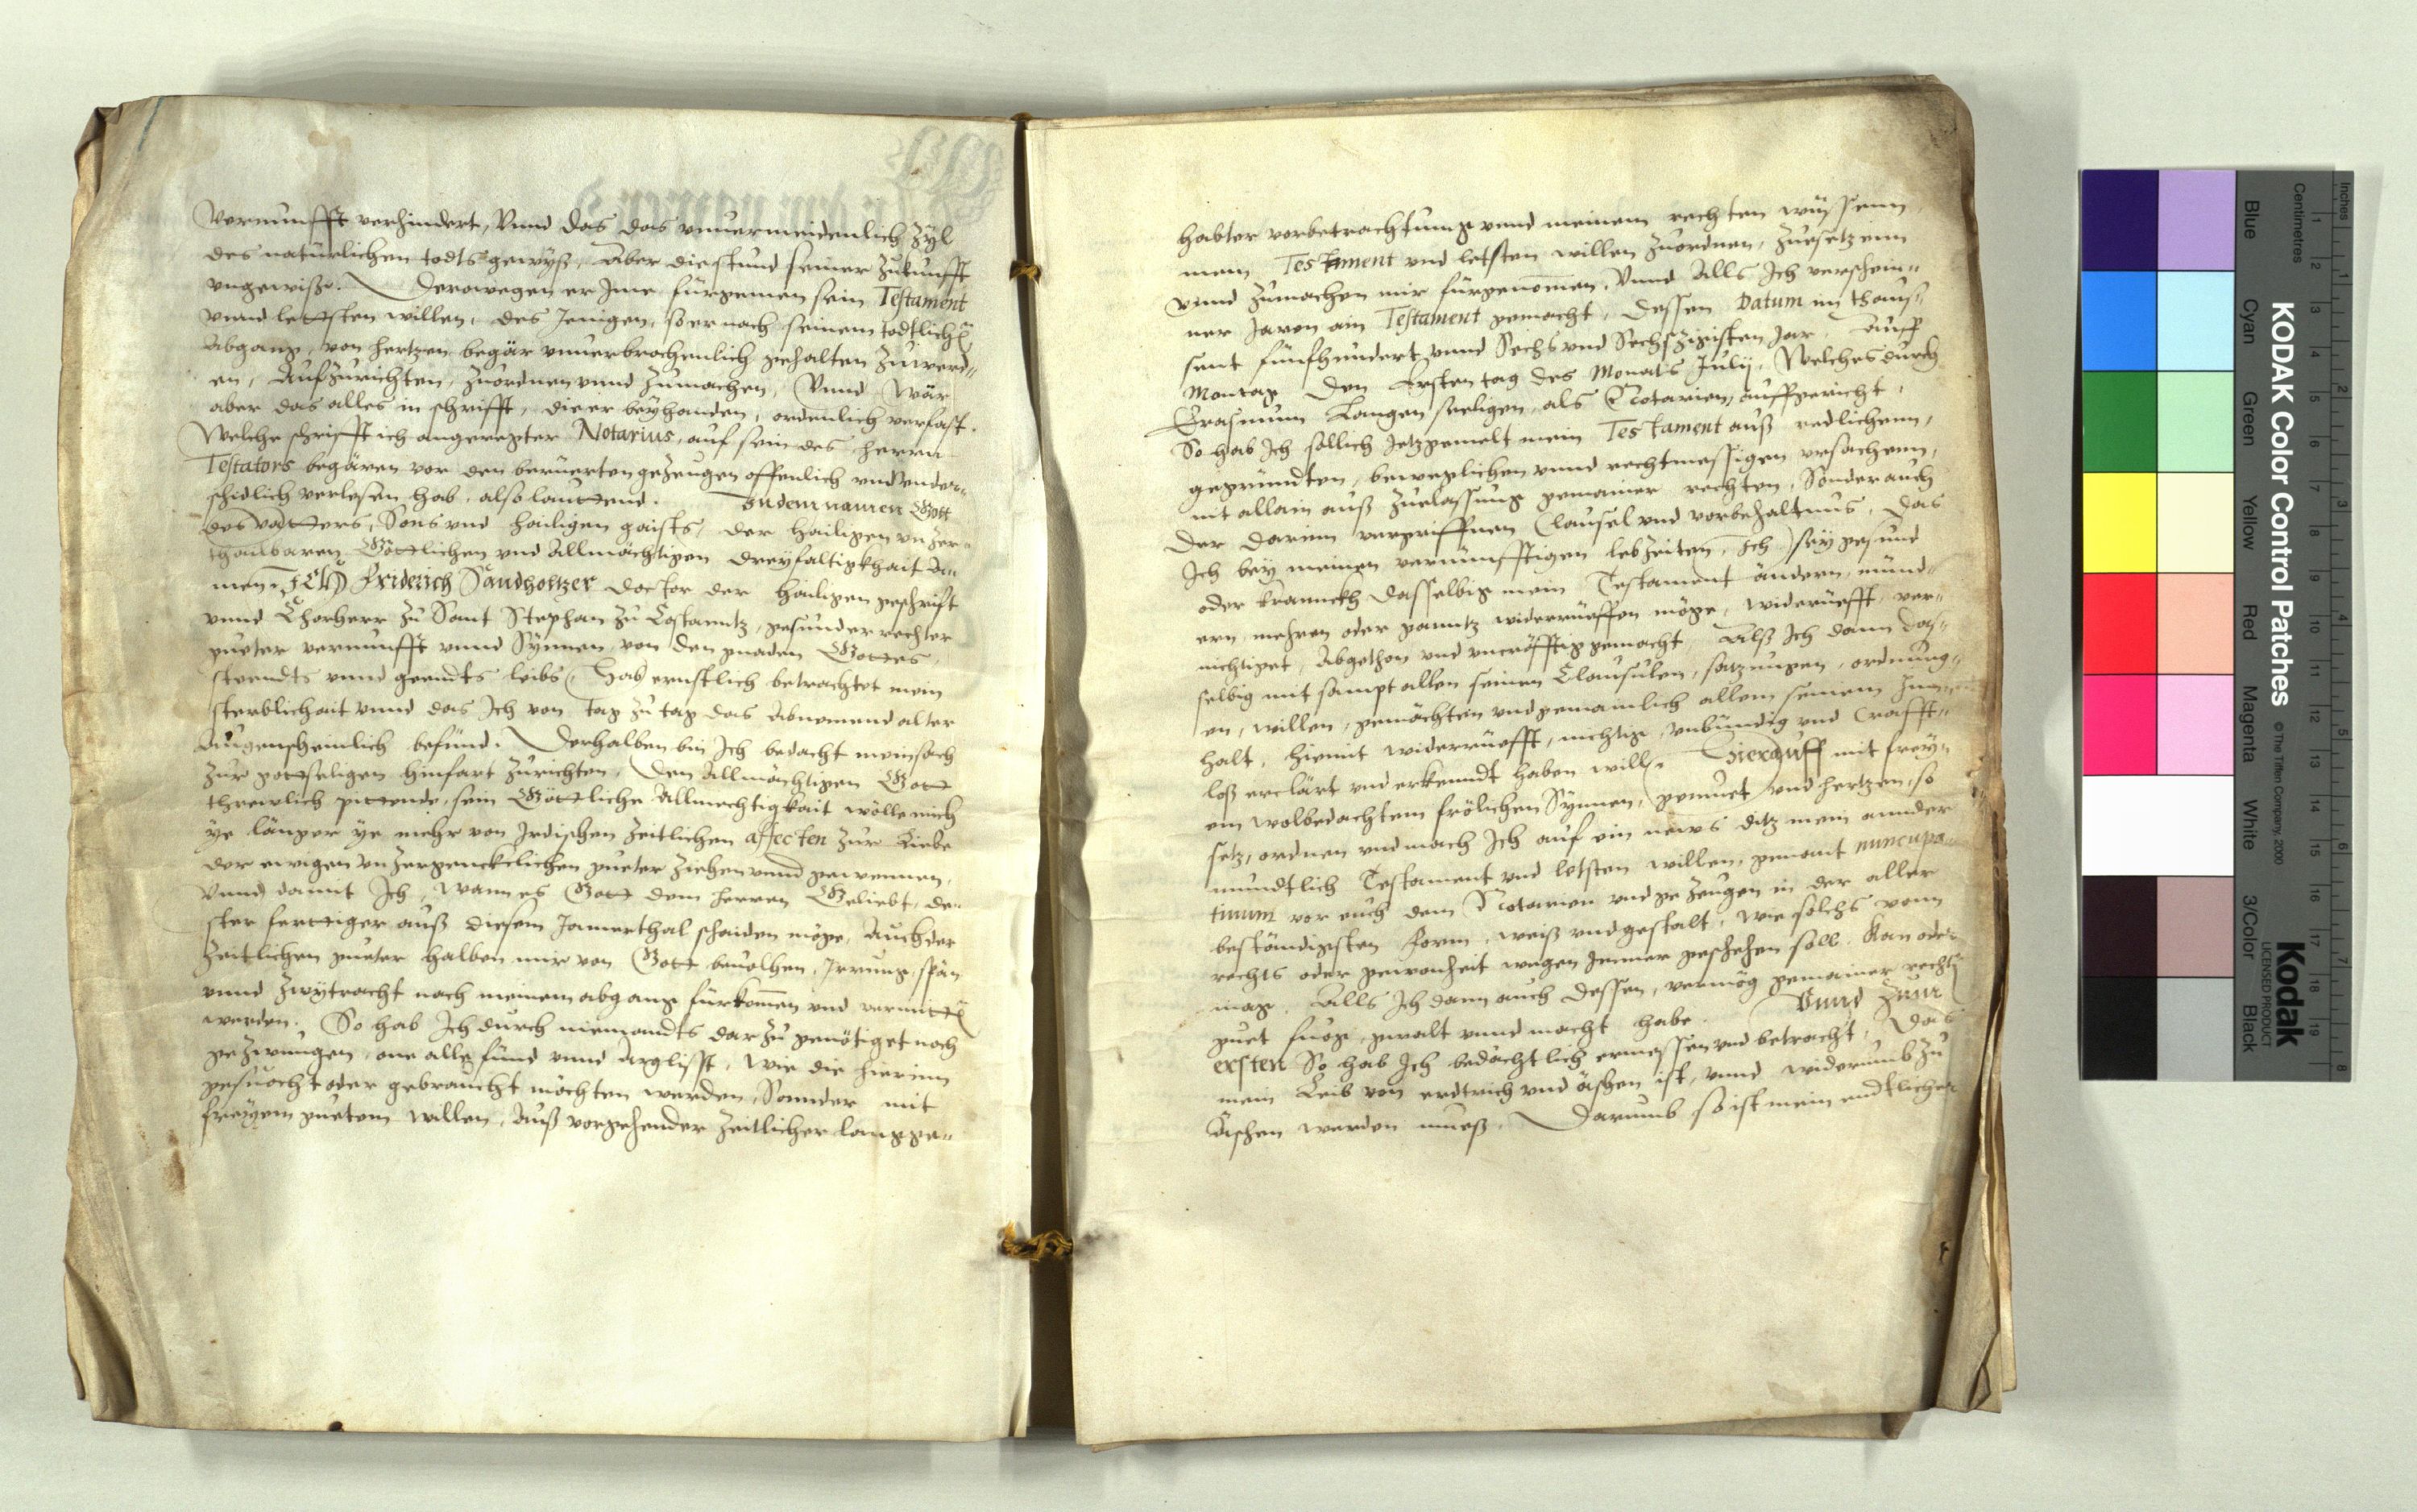 Vernunfft verhindert, Vnnd das das vnuermeidenlich Zyl
des natürlichen todts gewyß, Aber die stund seiner Zukunfft
vngewiß. Derowegen er Jme fürgenomen sein Testament
vnnd letsten willen, des Jenigen, so er nach seinem todtlichen
Abgang, von hertzen begär vnuerbrochenlich gehalten Zuwerd„
en, Aufzurichten, Zuordnen vnnd Zumachen, Vnnd Wär
aber das alles in schrifft, die er beyhanden, ordenlich verfast.
Welche schrifft ich angeregter Notarius, auf sein des herrn
Testators begären vor den berüerten gezeugen offenlich vnd vnder„
schidlich verlesen hab, also lauttend. In dem namen Gott
des vatters, Sons vnd hailigen gaists, der hailigen vnzer„
thailbaren Göttlichen vnd Allmächtigen dreyfaltigkhait A„
men. ICH Friderich Sandholtzer doctor der hailigen geschrift
vnnd Chorherr Zu Sant Stephan Zu Costanntz, gesunder rechter
gueter vernunfft vnnd Synnen, von den gnaden Gottes,
steendts vnnd geendts leibs, Hab ernstlich betrachtet mein
sterblichait vnnd das Ich von tag zu tag das Abnemend alter
Augenscheinlich befünd. Derhalben bin Ich bedacht mein sach
zur gottseligen hinfart Zurichten, Den Allmächtigen Gott
threwlich pittende, sein Göttliche Allmechtigkait wölle mich
ye länger ye mehr von Jrdischen Zeitlichen affecten zur Liebe
der ewigen vnzergenckclichen gueter Ziehen vnnd gewennen,
Vnnd damit Ich, wann es Gott dem herren Geliebt, de„
ster ferttiger auß diesem Jamerthal schaiden möge, Auch der
Zeitlichen gueter halben mir von Gott beuolhen, Jrrung, spän
vnnd Zwytracht nach meinem abgang fürkomen vnd vermitten
werden. So hab Ich durch niemandts darzu genötiget noch
gezwungen, one alle fünd vnnd Arglisst, wie die hierinn
gesuocht oder gebraucht möchten werden, Sonnder mit
freyem guetem willen, Auß vorgehender Zeitlicher langge„
habter vorbetrachtung vnnd meinem rechten wüssenn,
mein Testament vnd letsten willen Zuordnen, Zuesetzenn
vnnd Zumachen mir fürgenommen, Vnnd Alls Ich verschein„
ner Jaren ain Testament gemacht, dessen Datum im thaus„
sent fünfhundert vnnd Sechs vnd Sechszigisten Jar, Auff
Montag den Ersten tag des Monats July, Welches durch
Erasmum Langen seeligen, als Notarien, auffgericht,
So hab Ich sollich Jetzgemelt mein Testament auß redlichenn,
gegründten, beweglichen vnnd rechtmessigen vrsachenn,
nit allain auß Zuelassung gemainer rechten, Sonder auch
der darinn vergriffnen Clausel vnd vorbehaltnus, das
Ich bey meinen vernünfftigen lebzeiten, Ich sey gesund
oder kranckh dasselbig mein Testament ändern, münd„
ern, mehren oder ganntz widerrüeffen möge, widerüefft, ver„
nichtiget, Abgethon vnd vncräfftig gemacht, Alß Ich dann das„
selbig mit sampt allen seinen Clausulen, satzungen, ordnung„
en, willen, gemächten vnd gemainlich allem seinem Jnn„
halt, hiemit widerrüefft, nichtig, vnbündig vnd Crafft„
loß erclärt vnd erkenndt haben will. Hierauff mit frey„
em wolbedachtem frölichen Synnen, gemuet vnd hertzen, so
setz, ordnen vnd mach Ich auf ein news ditz mein annder
mundtlich Testament vnd letsten willen, genant nuncupa„
tiuum vor euch dem Notarien vnd gezeugen in der aller
bestendigsten Form, weiß vnd gestalt, wie solchs vonn
rechts oder gewonheit wegen Jmmer geschehen soll, Kan oder
mag. Alls Ich dann auch dessen, vermög gemainer rechten
guet fuog, gwalt vnnd macht habe. Vnnd Zum
ersten So hab Ich bedächtlich ermessen vnd betracht, Das
mein Leib von erdtrich vnd äschen ist, vnnd widerumb Zu
Äschen werden mueß. Darumb so ist mein endtlicher
KODAK Color Control Patches © The Tiffen Company, 2000
Kodak
LICENSED PRODUCT
Blue
Cyan
Green
Yellow
Red
Magenta
White
3/Color
Black
Centimetres
Inches
1
2
3
4
5
6
7
8
9
10
11
12
13
14
15
16
17
18
19
1
2
3
4
5
6
7
8